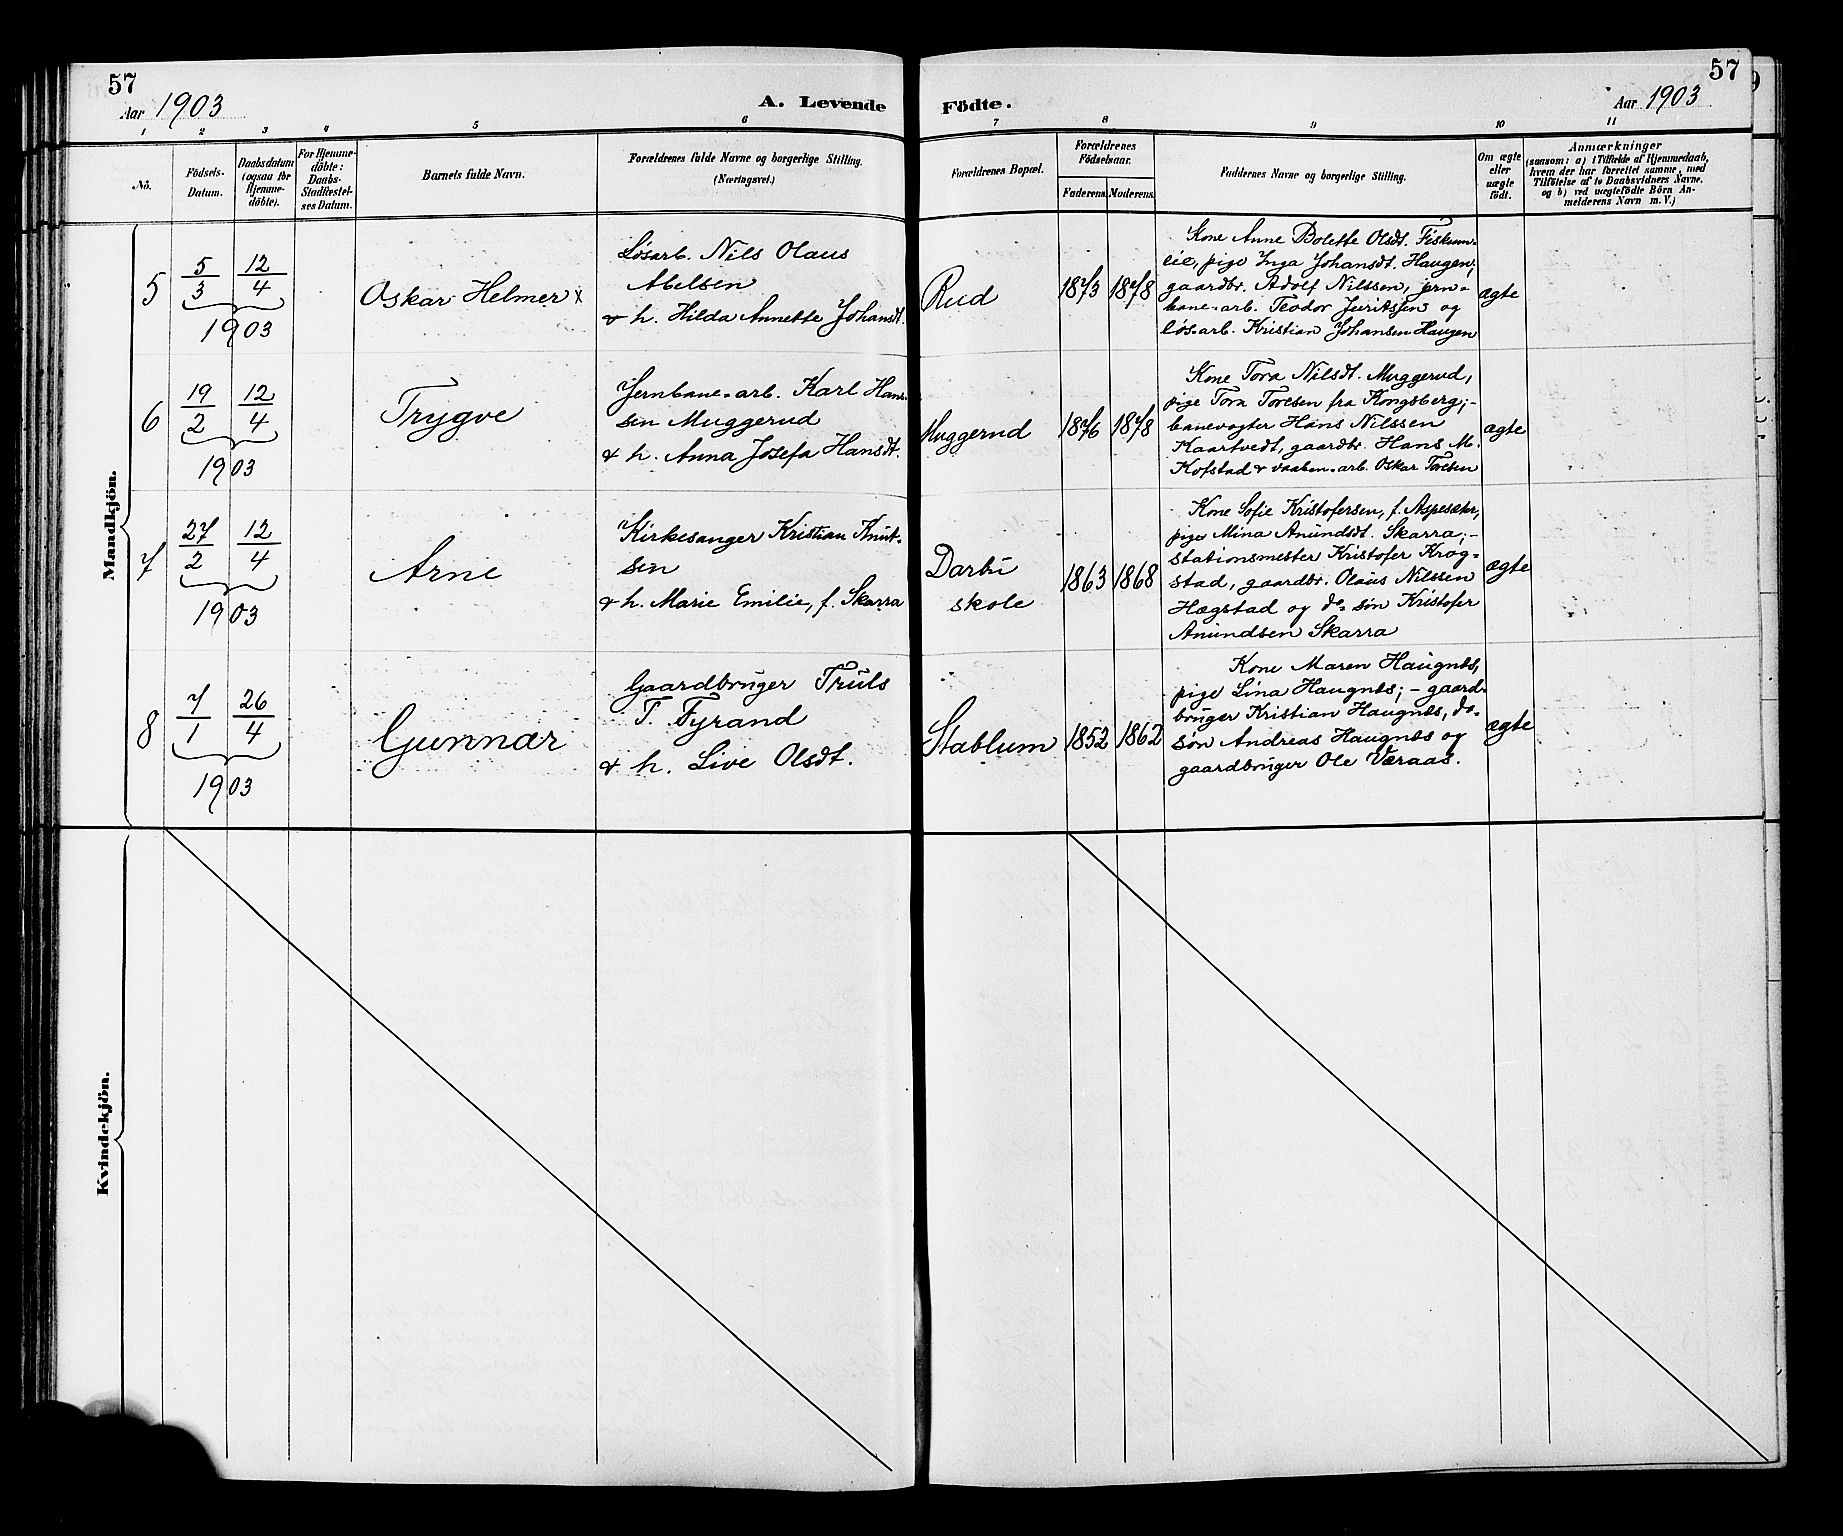 57
Aar 1903
A. Levende
Födte.
57
Aar 1903
1 2 3 4 5 6 7 8 9 10 11
No.
Födsels-
Datum.
Daabsdatum
(ogsaa for
Hjemme-
döbte).
For Hjemme-
döbte:
Daabs-
Stadfæstel-
ses Datum.
Barnets fulde Navn.
Forældrenes fulde Navne og borgerlige Stilling.
(Næringsvei.)
Forældrenes Bopæl.
Forældrenes
Födselsaar.
Faderens.
Moderens.
Faddernes Navne og borgerlige Stilling.
Om ægte
eller
uægte
födt.
Anmærkninger
(saasom: a) i Tilfælde af Hjemmedaab,
hvem der har forrettet samme, med
Tilföielse af to Daabsvidners Navne,
og b) ved uægtefödte Börn An-
melderens Navn m. V.)
Mandkjön.
5
5/3 12/4
1903
Oskar Helmer x
Løsarb. Nils Olaus
Abelsen
& h. Hilda Annette Johansdt.
Rud
1873 1878
Kone Anne Bolette Olsdt. Fiskum-
eie, pige Inga Johansdt. Haugen;
gaardbr. Adolf Nilssen, jern-
bane-arb. Teodor Juritsen og
løsarb. Kristian Johansen Haugen
ægte
6
19/2 12/4
1903
Trygve
Jernbane-arb. Karl Han-
sen Muggerud
& h. Anna Josefa Hansdt.
Muggerud
1876 1878
Kone Tora Nilsdt. Muggerud,
pige Tora Toresen fra Kongsberg;-
banevogter Hans Nilssen
Kaartvedt, gaardbr. Hans M.
Kofstad & vaaben-arb. Oskar Toresen
ægte
7
27/2 12/4
1903
Arne
Kirkesanger Kristian Knut-
sen
& h. Marie Emilie, f. Skarra
Darbu
skole
1863 1868
Kone Sofie Kristofersen, f. Aspesæter,
pige Mina Anundsdt. Skarra;-
stationsmester Kristofer Krog-
stad, gaardbr. Olaus Nilssen
Hægstad og do- søn Kristofer
Anundsen Skarra
ægte
8
7/1 26/4
1903
Gunnar
Gaardbruger Truls
T. Fyrand
& h. Live Olsdt.
Stablum
1852 1862
Kone Maren Haugnes,
pige Lina Haugnes; - gaard-
bruger Kristian Haugnes, do-
søn Andreas Haugnes og
gaardbruger Ole Væraas.
ægte
Kvindekjön.